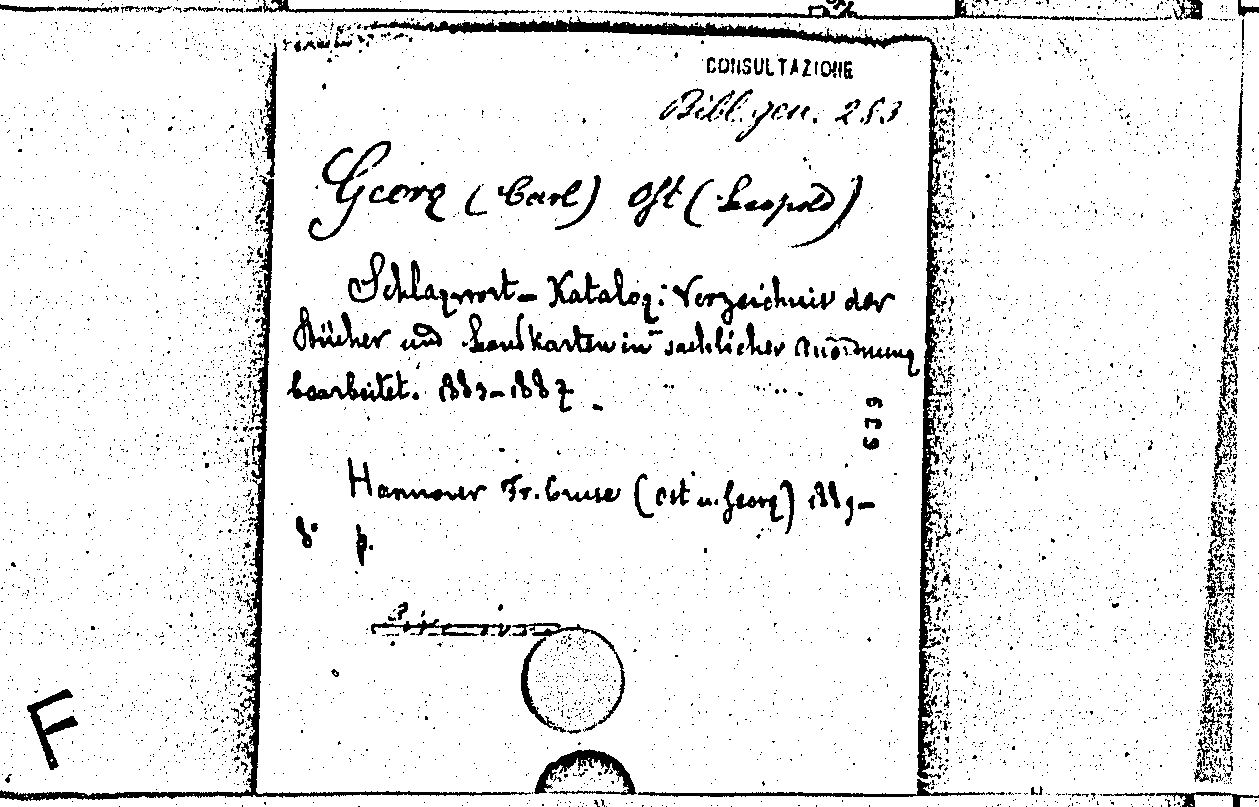 CONSULTAZIONE
Bibl. gen. 283
Georg (Carl) Ost (Leopold)
Schlagwort - Katalog: Verzeichnis der
Bücher und Landkarten in sachlicher Anordnung
bearbeitet. 1883-1887
633
Hannover Fr. Cruse (Ost u. Georg) 1889-
8° p.
F